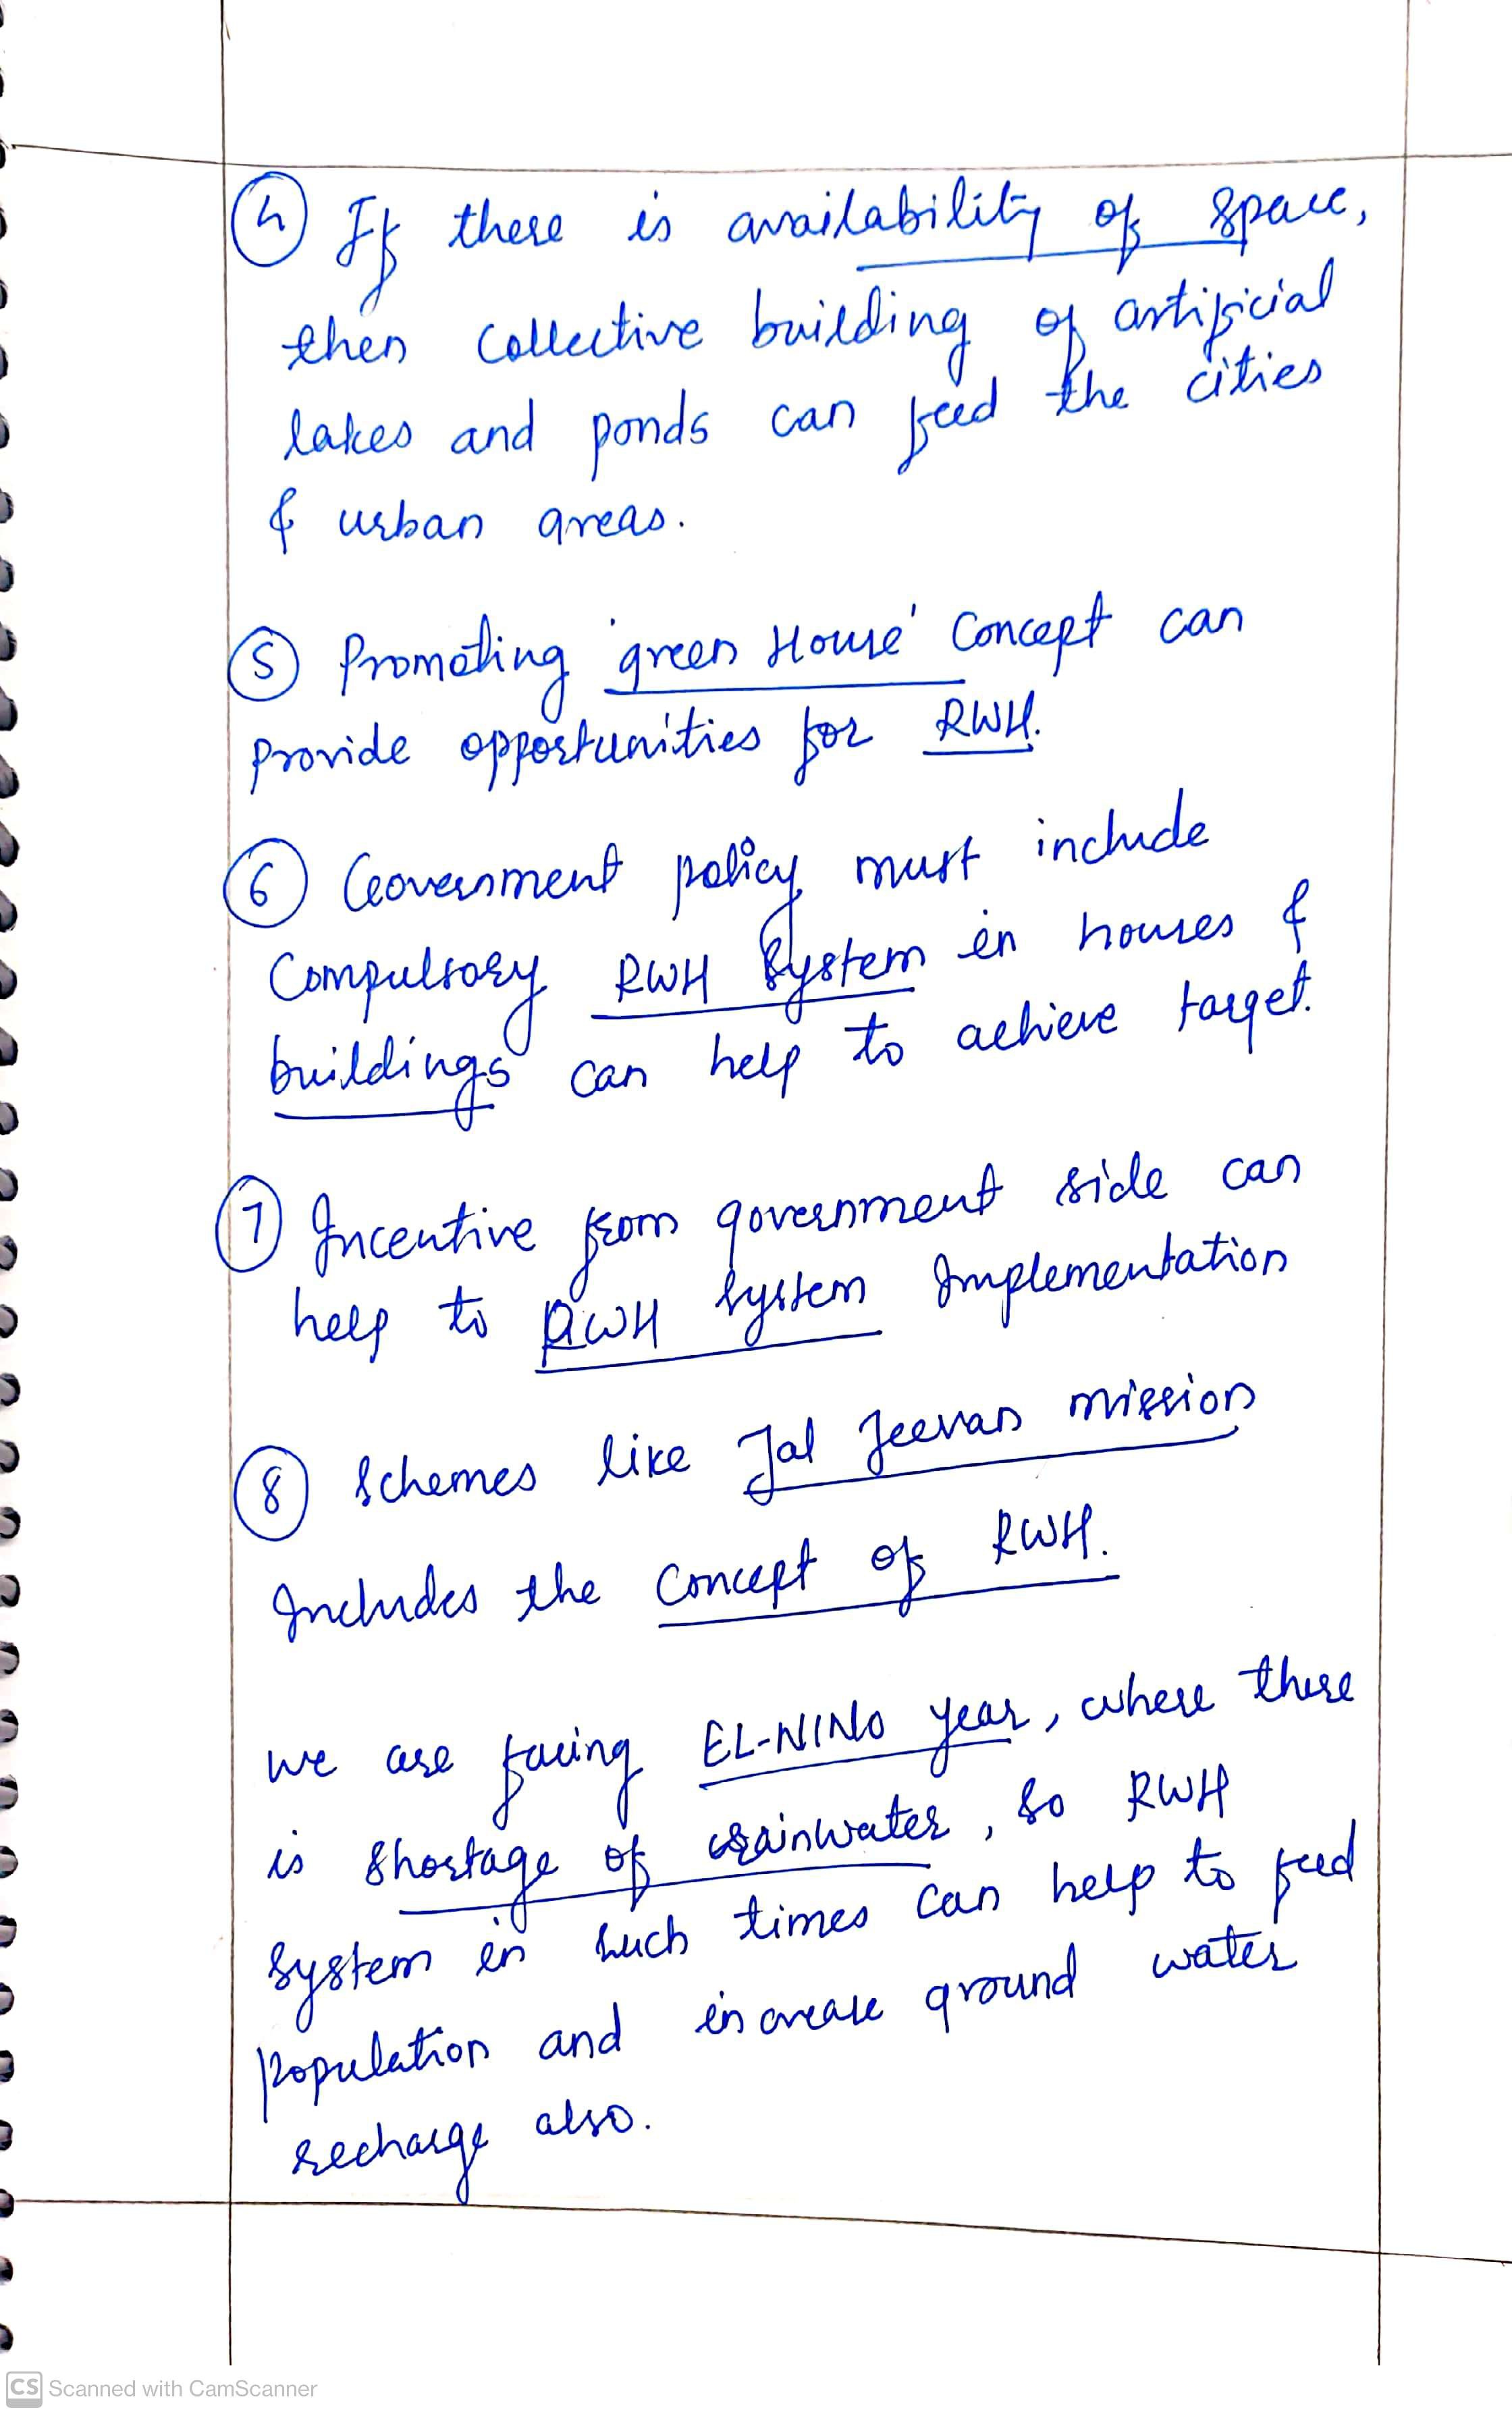 4 If there is availability of space,
then collective building of artificial
lakes and ponds can feed the cities
& urban areas.
5 Promoting 'green House' Concept can
provide opportunities for RWH.
6 Government policy must include
Compulsory RWH System in houses &
buildings can help to achieve target.
7 Incentive from government side can
help to RWH System Implementation
8 Schemes like Jal Jeevan mission
Includes the concept of RWH.
we are facing EL-NINO year, where there
is shortage of rainwater, so RWH
System in such times can help to feed
population and increase ground water
recharge also.
CS Scanned with CamScanner